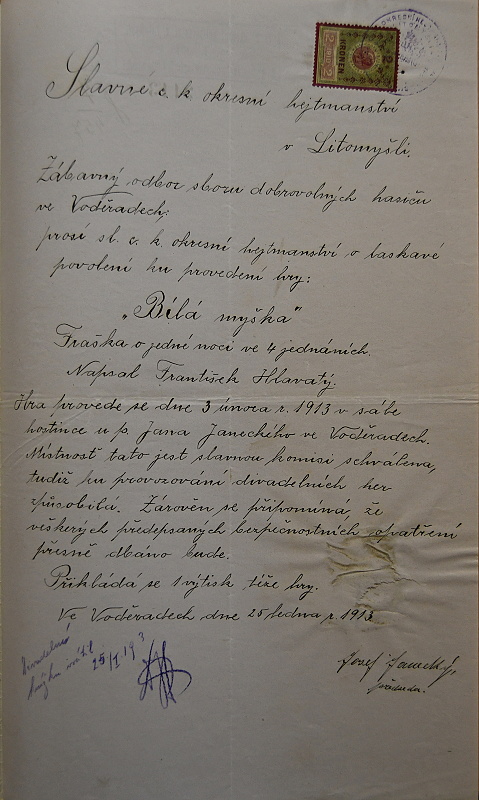 2 KRONEN 2
Slavné c. k. okresní hejtmanství
v Litomyšli.
Zábavný odbor sboru dobrovolných hasičů
ve Voděradech:
prosí sl. c. k. okresní hejtmanství o laskavé
povolení ku provedení hry:
„Bílá myška"
Fraška o jedné noci ve 4 jednáních.
Napsal František Hlavatý.
Hra provede se dne 3 února r. 1913 v sále
hostince u p. Jana Janeckého ve Voděradech.
Místnost tato jest slavnou komisí schválena,
tudíž ku provozování divadelních her
způsobilá. Zároveň se připomíná, že
veškerých předepsaných bezpečnostních opatření
přesně dbáno bude.
Přikládá se 1 výtisk téže hry.
Ve Voděradech dne 25 ledna r. 1913
Josef Janecký,
předseda.
25/I 193